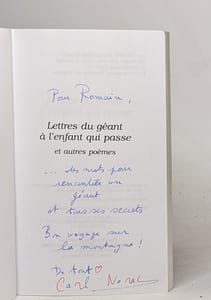 Pour Romain,
Lettres du géant
à l'enfant qui passe
et autres poèmes
... des mots pour
rencontrer un
géant
et tous ses secrets
Bon voyage sur
la montagne !
De tout
Carl Norac